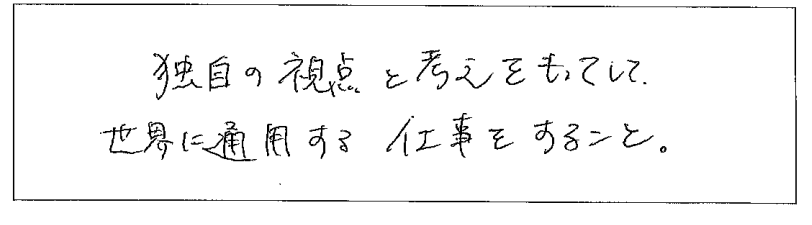 独自の視点と考えをもってして、
世界に通用する仕事をすること。